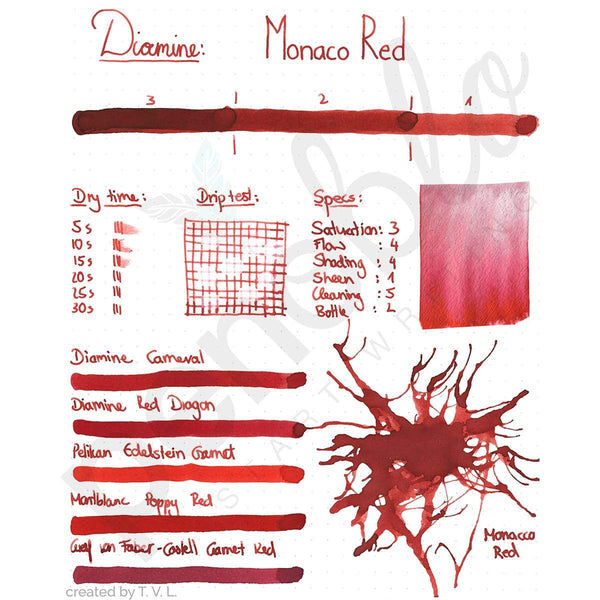 Diamine: Monaco Red
3 2 1
Dry time: Driptest: Specs:
5s
10s
15s
20s
25s
30s
Saturation: 3
Flow : 4
Shading : 4
Sheen : 1
Cleaning : 5
Bottle : 2
Diamine Carneval
Diamine Red Dragon
Pelikan Edelstein Garnet
Montblanc Poppy Red
Graf von Faber-Castell Garnet Red
Monacco
Red
created by T. V. L.